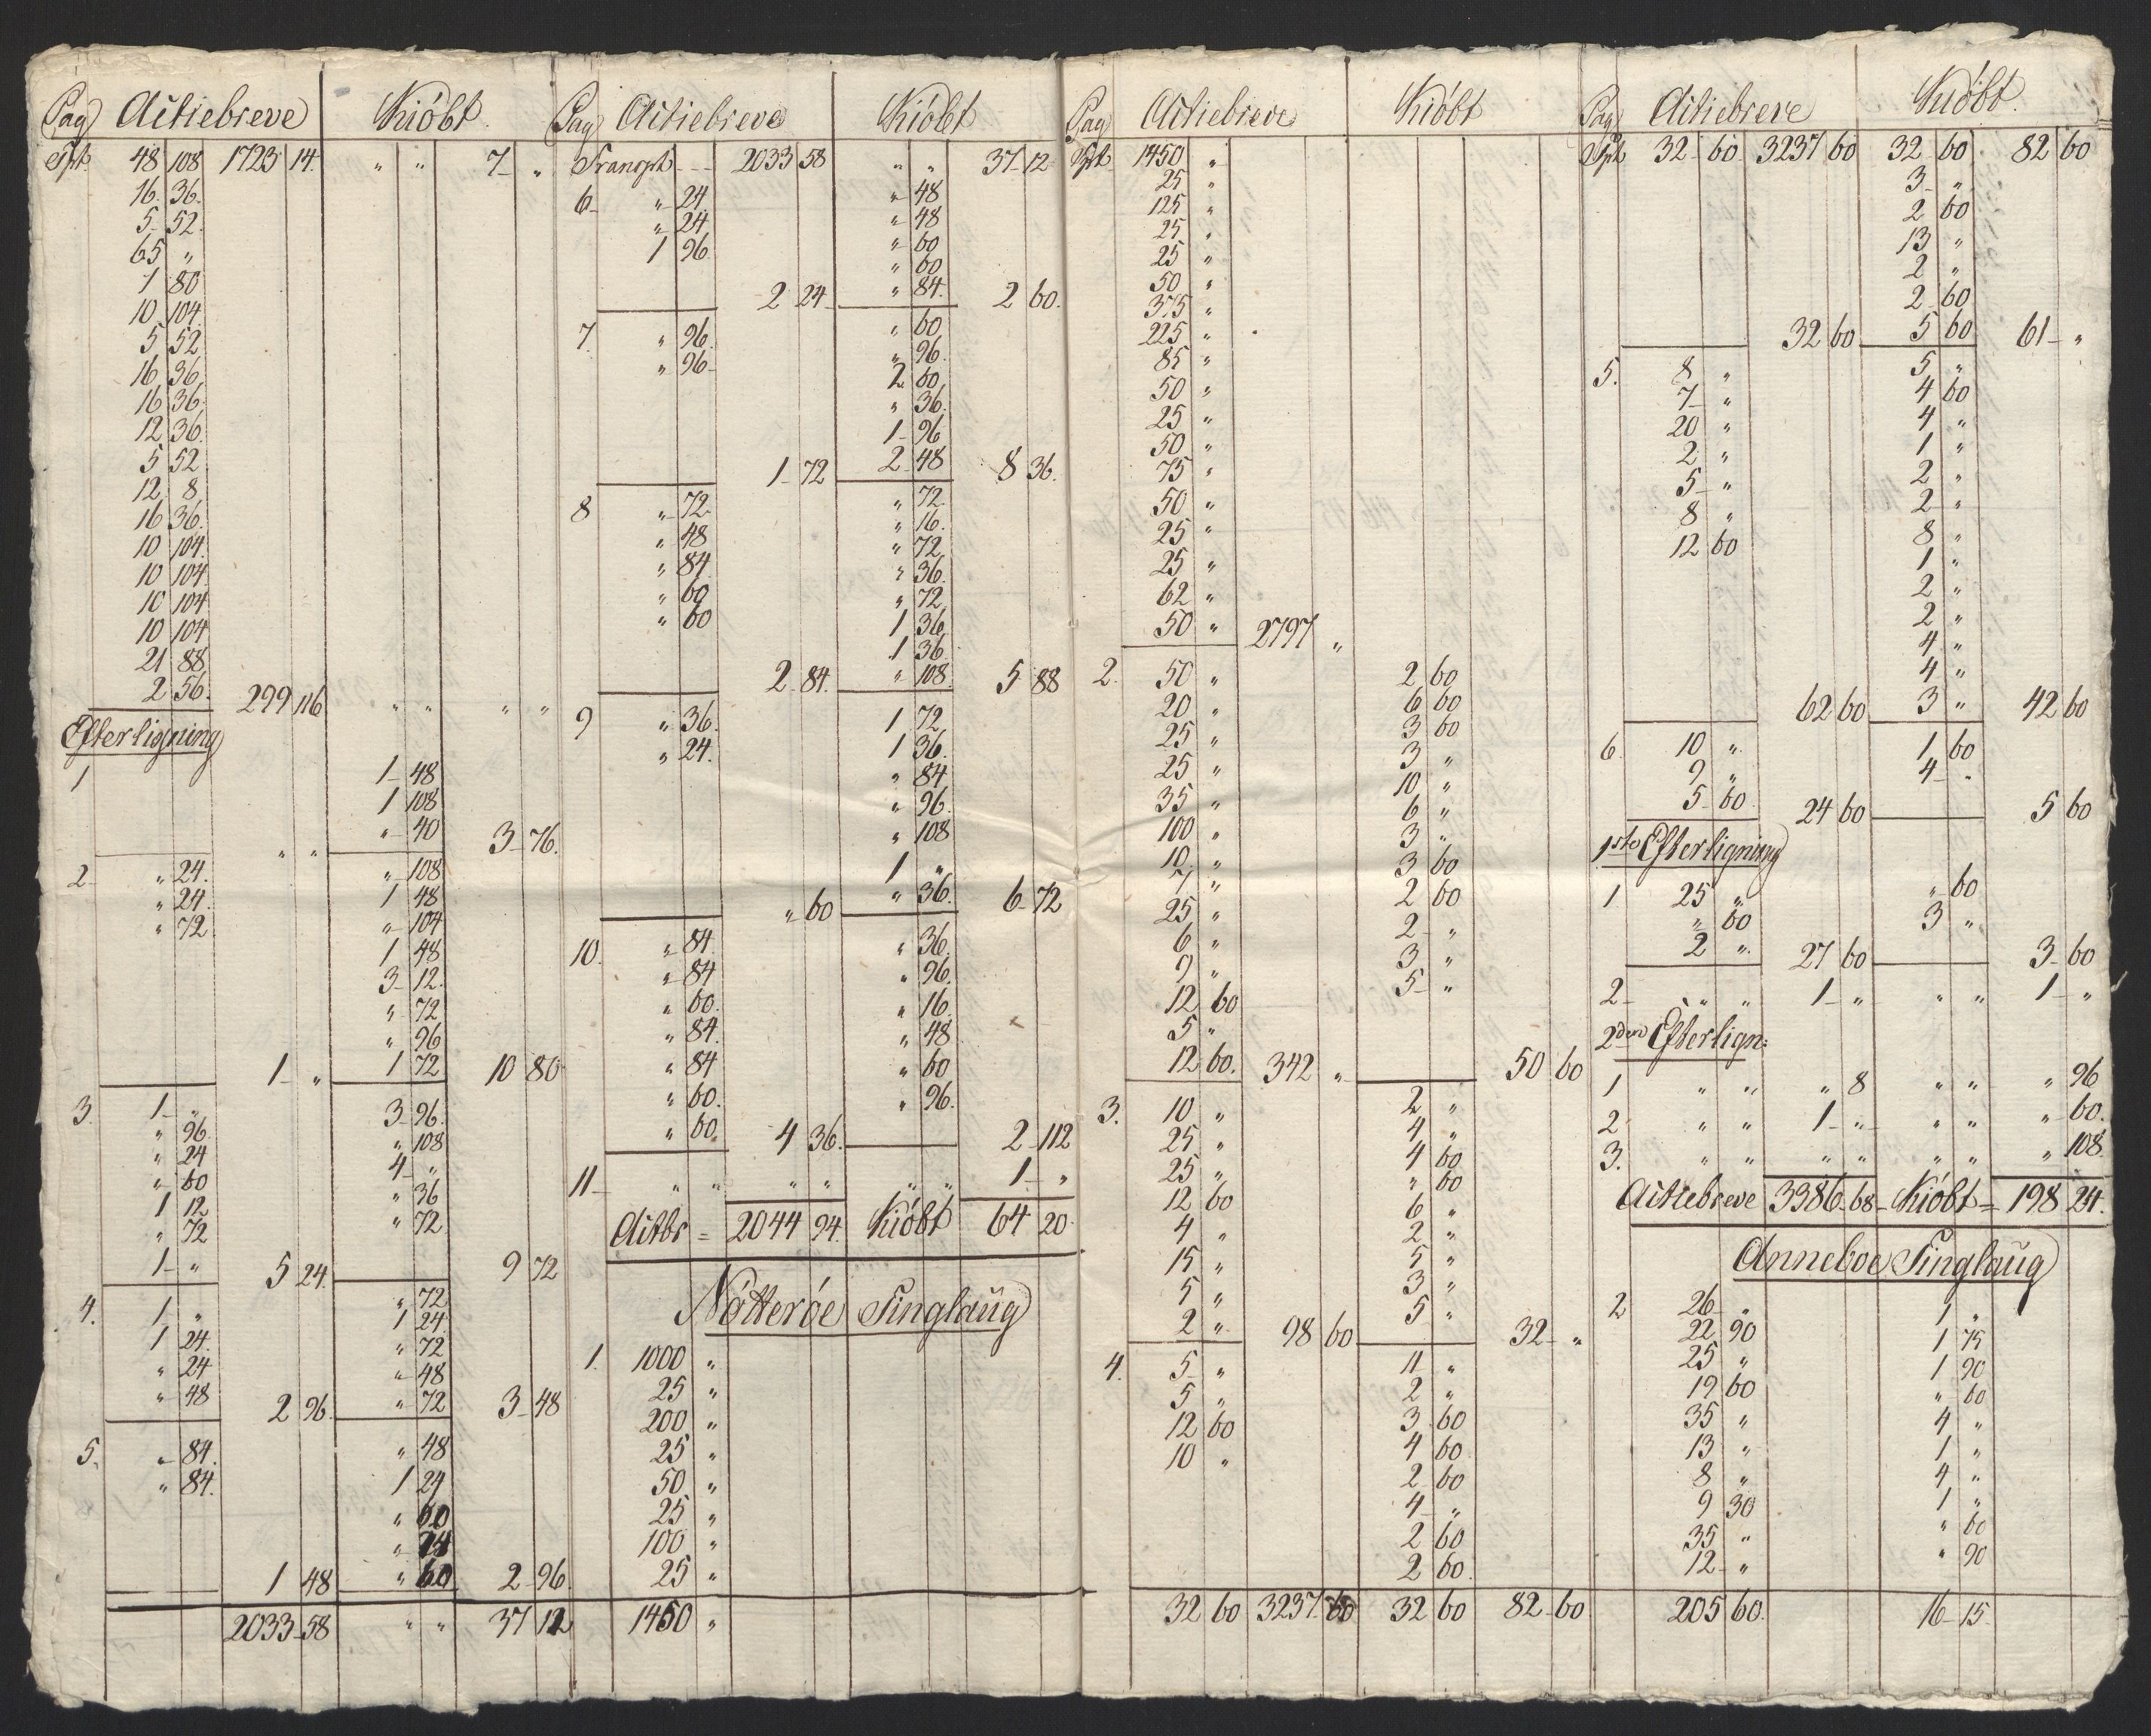 Pag Actiebreve Kióbt.
Tpt. 48 108 1723 14. " " 7 "
16. 36.
5 52.
65 "
1 80
10 104.
5 52
16 36
16 36.
12 36.
5 52
12 8
16 36.
10 104.
10 104
10 104
10 104
21 88
2 56. 299 116 " " " "
Efterligning
1 1 48
1 108
" 40
" " 3 76.
2 " 24. " 108
" 24. 1 48
" 72 " 104
1 48
3 12.
" 72
" 96
1 " 1 72 10 80
3. 1 " 3 96.
" 96. " 108
" 24 4 "
" 60 " 36
1 12 " 72
" 72
1 " 5 24. 9 72
4. 1 " " 72
1 24. 1 24
" 24 " 72
" 48 " 48
2 96. " 72 3 48
5. " 84. " 48
" 84. 1 24
" 60
" 24
1 48 " 60 2 96
2033 58 " " 37 12
Pag Actiebreve Kióbt
Transpt 2033 58 " " 37 12
6 " 24 " 48
" 24 " 48
1 96 " 60
" 60
2 24 " 84. 2 60.
7. " 96. " 60
" 96 " 96.
2 60
" 36.
1 96
1 72 2 48 8 36.
8 " 72. " 72
" 48 " 16.
" 84 " 72
" 60 " 36.
" 60 " 72
1 36
1 36
2 84. " 108. 5 88
9 " 36. 1 72
" 24. 1 36.
" 84
" 96.
" 108
1 "
" 60 " 36. 6 72
10. " 84 " 36.
" 84 " 96.
" 60. " 16.
" 84. " 48
" 84 " 60
" 60. " 96.
" 60. 4 36. 2 112
11 " " " " " " 1 "
Actbr = 2044 94. Kióbt 64 20
Nótteróe Tinglaug
1. 1000 "
25 "
200 "
25 "
50 "
25 "
100 "
25 "
1450 "
Pag Actiebreve Kióbt
Tpt. 1450 "
25 "
125 "
25 "
25 "
50 "
375 "
225 "
85 "
50 "
25 "
50 "
75 "
50 "
25 "
25 "
62 "
50 " 2797 "
2. 50 " 2 60
20 " 6 60
25 " 3 60
25 " 3 "
35 " 10 "
100 " 6 "
10 " 3 "
7 " 3 60
25 " 2 60
6 " 2 "
9 " 3 "
12 60 5 "
5 "
12 60. 342 " 50 60
3. 10 " 2 "
25 " 4 "
25 " 4 60
12 60 " 60
4 " 6 "
15 " 2 "
5 " 5 "
2 " 3 "
98 60 5 " 32 "
4. 5 " 11 "
5 " 2 "
12 60 3 60
10 " 4 60
2 60
4 "
2 60
2 60.
32 60 3237 60 32 60 82 60
Pag Actiebreve Kióbt.
Tpt 32 60 3237 60 32 60 82 60
3 "
2 60
13 "
2 "
2 60
32 60 5 60 61 "
5. 8 " 5 "
7 " 4 60
20 " 4 "
2 " 1 "
5 " 2 "
8 " 2 "
12 60 8 "
1 "
2 "
2 "
4 "
4 "
62 60 3 " 42 60
6 10 " 1 60
9 " 4 "
5 60 24 60 5 60
1ste Efterligning
1 25 " " 60
" 60 3 "
2 " 27 60 3 60
2 " " 1 " " " 1 "
2den Efterlign:
1 " " " 8 " " " 96
2 " " 1 " " " " 60.
3. " " " " " " " 108
Actiebreve 3386 68 Kióbt = 198 24.
Anneboe Tinglaug
2 26 " 1 "
22 90 1 75
25 " 1 90
19 60 " 60
35 " 4 "
13 " 1 "
8 " 4 "
9 30 1 "
35 " " 60
12 " " 90
205 60. 16 15